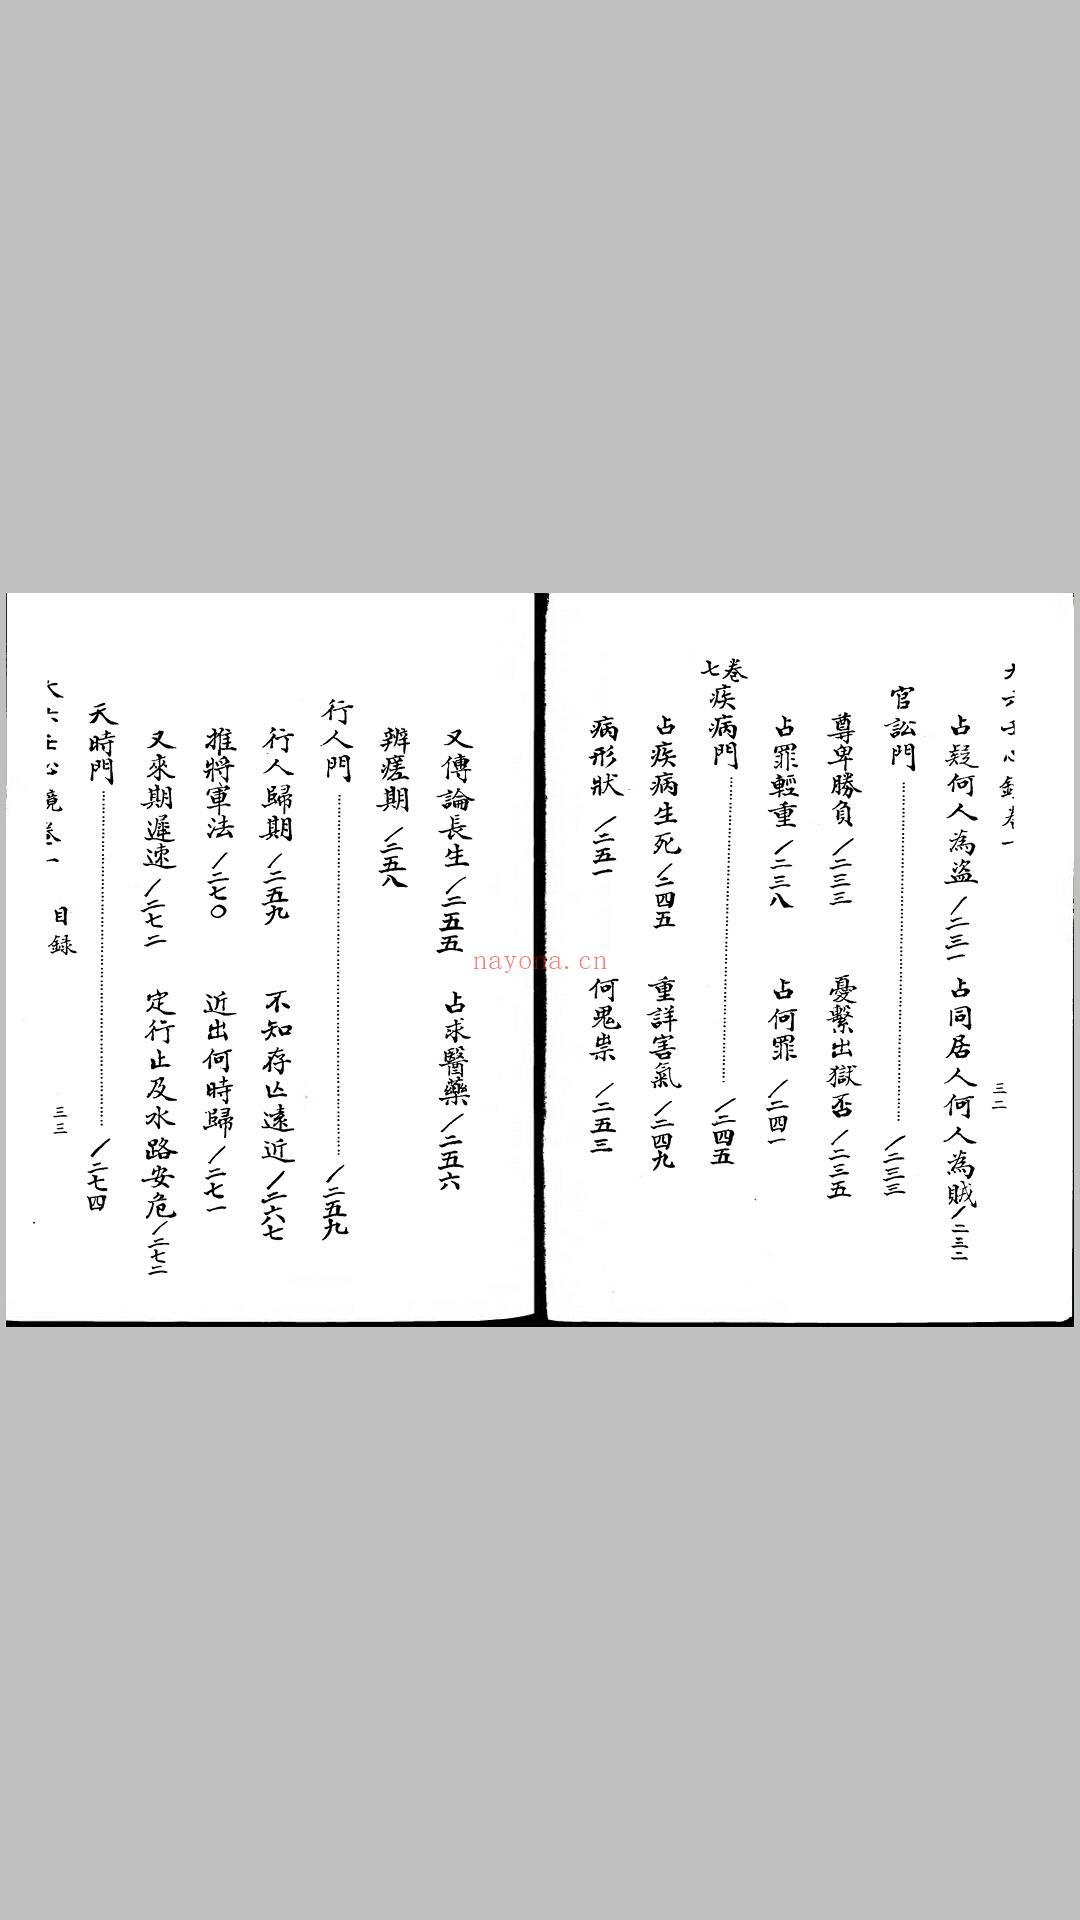 占疑何人為盜/二三一 占同居人何人為賊/二三二
三二
官訟門………/二三三
尊卑勝負/二三三 憂繫出獄否/二三五
占罪輕重/二三八 占何罪/二四一
卷七 疾病門………/二四五
占疾病生死/二四五 重詳害氣/二四九
病形狀/二五一 何鬼祟/二五三
又傳論長生/二五五 占求醫藥/二五六
辨瘥期/二五八
行人門………/二五九
行人歸期/二五九 不知存亡遠近/二六七
推將軍法/二七〇 近出何時歸/二七一
又來期遲速/二七二 定行止及水路安危/二七二
天時門………/二七四
目錄 三三
nayona.cn